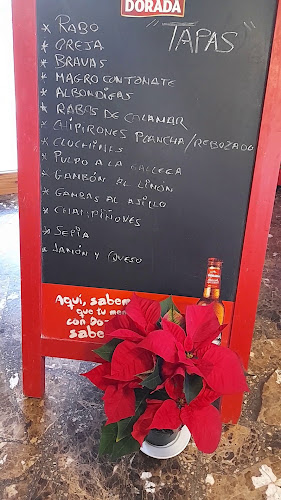 DORADA
"TAPAS"
* RABO
* OREJA
* BRAVAS
* MAGRO CON TOMATE
* ALBONDIGAS
* RABAS DE CALAMAR
* CHIPIRONES PLANCHA/REBOZADO
* CLOCHINAS
* PULPO A LA GALLEGA
* GAMBÓN AL LIMÓN
* GAMBAS AL AJILLO
* CHAMPIÑONES
* SEPIA
* JAMÓN Y QUESO
Aquí, sabem
que tu me
con Do
sabe